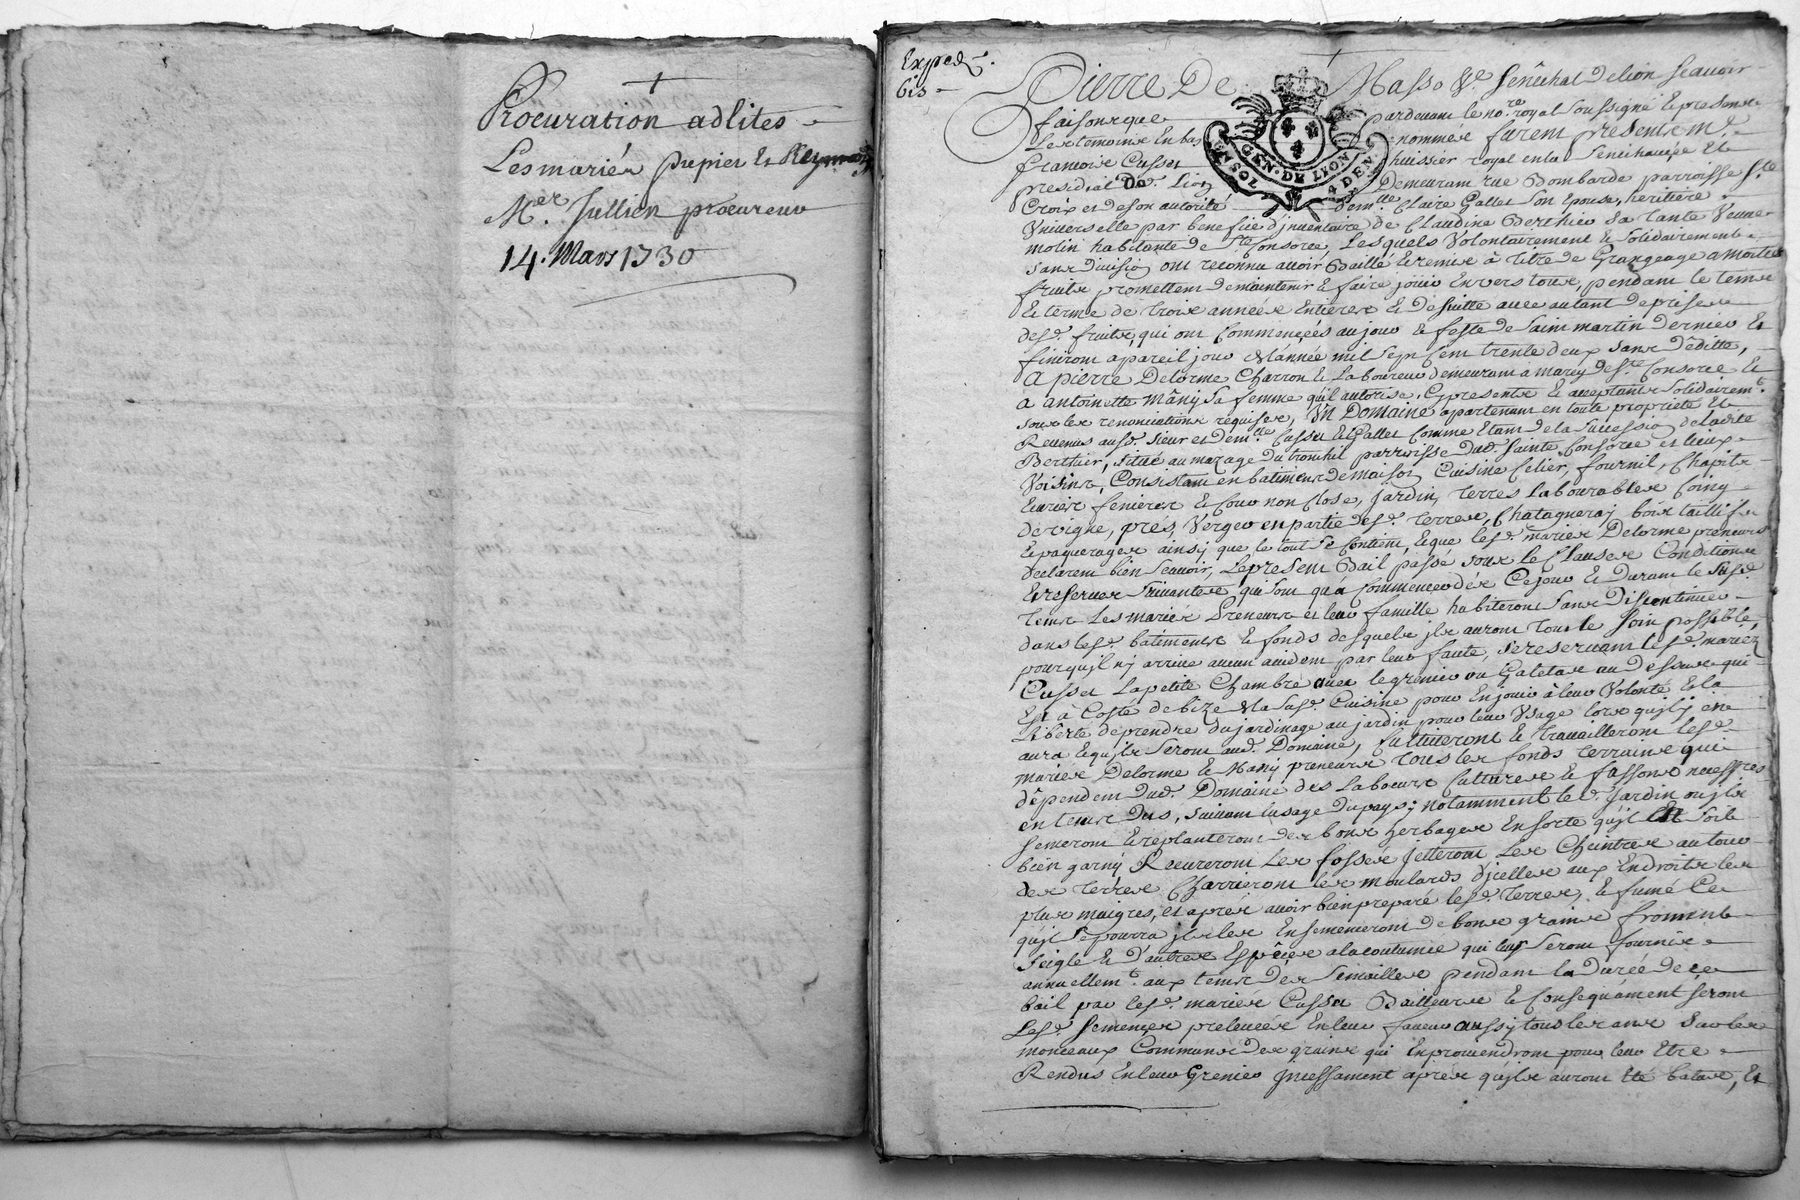 Procuration adlites
Les mariés pupier et Reymond
Mer. Jullien procureur
14. Mars 1730
Expedé.
bis
Pierre De Masso Sr. Senêchal de lion scavoir
faisons que pardevant le nore. royal soussigné et presents
Les temoins en bas nommés furent presents mr.
francois Cusset huissier royal en la Senechaussée et
presidial de Lion Demeurant rue Bombarde parroisse Ste.
Croix et de son autorité demlle. Claire Gallet son Epouse, heritiere
Universelle par benefice d'inventaire de Claudine Berthier sa tante veuve
molin habitante de Ste. Consorce, Lesquels Volontairement et solidairement
sans division ont reconnu avoir Baillé et remis à titre de Grangeage a moitié
fruits promettent de maintenir et faire jouir Envers tous, pendant le tems
et terme de trois années Entieres et de suitte avec autant de prises
desd. fruits, qui ont commencées au jour et feste de Saint martin dernier et
finiront a pareil jour de l'année mil sept cent trente deux sans dêditte,
a pierre Delorme Charron et Laboureur demeurant a marcy de ste. Consorce et
a antoinette mâny sa femme qu'il autorise, Cy presents et acceptants solidairemt.
sous les renonciations requises, un Domaine apartenant en toute proprieté et
Revenus ausd. sieur et demlle. Cusset et Gallet comme Etant de la succession de ladite
Berthier, situé au mazage du tronchil parroisse dud. Sainte Consorce et lieux
Voisins, Consistant en batiments de maison Cuisine Celier, fournil, Chapit
Ecuries fenieres et Cour non close, jardin, terres Labourables Coing
de vigne, prés, Verger en partie desd. terres, Chatagneray bois taillif
et paquerages ainsy que le tout se contient, et que lesd. mariés Delorme preneurs
declarent bien scavoir, Le present Bail passé sous les Clauses Conditions
et reserves suivantes, qui sont qu'a commencer dez Cejour et Durant le susd.
tems Les mariés Preneurs et leur famille habiteront sans discontinuer
dans lesd. batiments et fonds desquels ils auront tout le soin possible,
pour qu'il n'y arrive aucun accident par leur faute, se reservant lesd. mariez
Cusset La petite Chambre avec le grenier ou Galetas au dessus qui
Est à Costé de bize de la susd. Cuisine pour En jouir à leur Volonté et la
Liberté de prendre du jardinage au jardin pour leur Usage lors qu'il y en
aura et qu'ils seront aud. Domaine, Cultiveront et travailleront lesd.
mariés Delorme et Many preneurs tous les fonds terrains qui
dêpendent dud. Domaine des Labours Cultures et fassons necessres
en tems dus, suivant lusage du pays; notamment led. jardin ou ils
semeront et replanteront des bons herbages En sorte qu'il En soit
bien garny Recureront Les fossés jetteront Les Cheintres autour
des terres Charrieront les moulards d'icelles aux Endroits les
plus maigres, et aprés avoir bien preparé lesd. terres, et fumé Ce
qu'il se pourra ils les Ensemenceront de bons grains froment
seigle et d'autres Espêces a la coutumée qui leur seront fournis
annuellemt. aux tems des Semailles pendant la durée de ce
bail par lesd. mariés Cusset Bailleurs et Consequâment seront
Lesd. semences prelevées En leur faveur aussy tous les ans sur les
monceaux Communs des grains qui En proviendront pour leur Etre
Rendus En leur Grenier incessament aprés qu'ils auront Eté batus, et